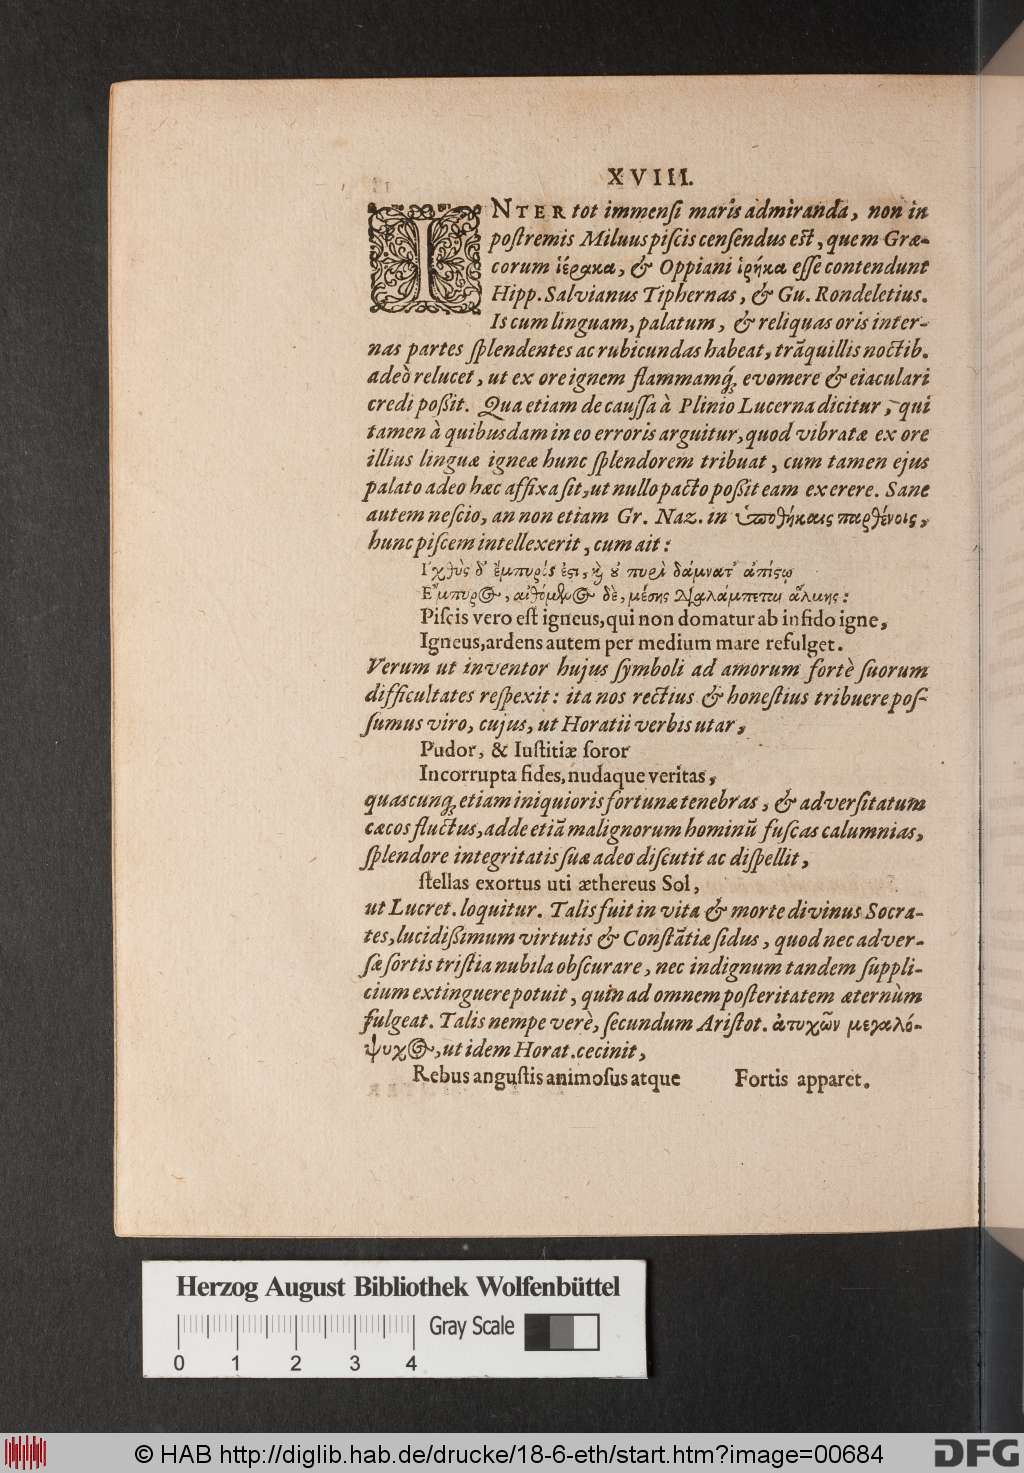 XVIII.
INTER tot immensi maris admiranda, non in
postremis Miluus piscis censendus est, quem Græ-
corum ἱέρακα, & Oppiani ἱρήκα esse contendunt
Hipp. Salvianus Tiphernas, & Gu. Rondeletius.
Is cum linguam, palatum, & reliquas oris inter-
nas partes splendentes ac rubicundas habeat, trãquillis noctib.
adeò relucet, ut ex ore ignem flammamq́; evomere & eiaculari
credi poßit. Qua etiam de caussa à Plinio Lucerna dicitur, qui
tamen à quibusdam in eo erroris arguitur, quod vibratæ ex ore
illius linguæ igneæ hunc splendorem tribuat, cum tamen ejus
palato adeo hæc affixa sit, ut nullo pacto poßit eam exerere. Sane
autem nescio, an non etiam Gr. Naz. in ὑποθήκαις παρθένοις,
hunc piscem intellexerit, cum ait:
Ἰχθὺς δ' ἔμπυρίς ἐστι, καὶ οὐ πυρὶ δάμνατ' ἀπίστῳ
Ἔμπυρος, αἰθόμενος δὲ, μέσης διαλάμπεται ἅλμης:
Piscis vero est igneus, qui non domatur ab infido igne,
Igneus, ardens autem per medium mare refulget.
Verum ut inventor hujus symboli ad amorum fortè suorum
difficultates respexit: ita nos rectius & honestius tribuere pos-
sumus viro, cujus, ut Horatii verbis utar,
Pudor, & Iustitiæ soror
Incorrupta fides, nudaque veritas,
quascunq; etiam iniquioris fortunæ tenebras, & adversitatum
cæcos fluctus, adde etiã malignorum hominũ fuscas calumnias,
splendore integritatis suæ adeo discutit ac dispellit,
stellas exortus uti æthereus Sol,
ut Lucret. loquitur. Talis fuit in vita & morte divinus Socra-
tes, lucidißimum virtutis & Constãtiæ sidus, quod nec adver-
sæ sortis tristia nubila obscurare, nec indignum tandem suppli-
cium extinguere potuit, quin ad omnem posteritatem æternùm
fulgeat. Talis nempe verè, secundum Aristot. ἀτυχῶν μεγαλό-
ψυχος, ut idem Horat. cecinit,
Rebus angustis animosus atque Fortis apparet.
Herzog August Bibliothek Wolfenbüttel
Gray Scale
0 1 2 3 4
© HAB http://diglib.hab.de/drucke/18-6-eth/start.htm?image=00684
DFG